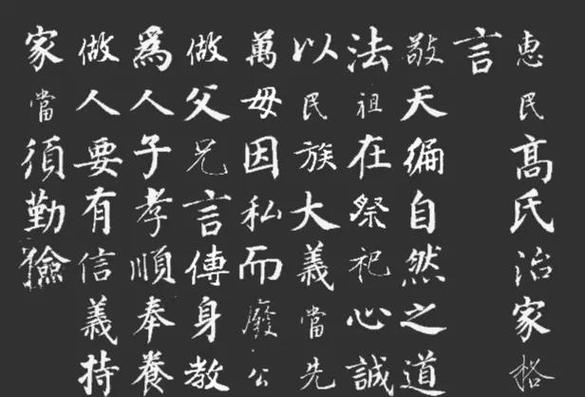 惠民高氏治家格
言
敬天偏自然之道
法祖在祭祀心誠
以民族大義當先
萬毋因私而廢公
做父兄言傳身教
爲人子孝順奉養
做人要有信義持
家當須勤儉